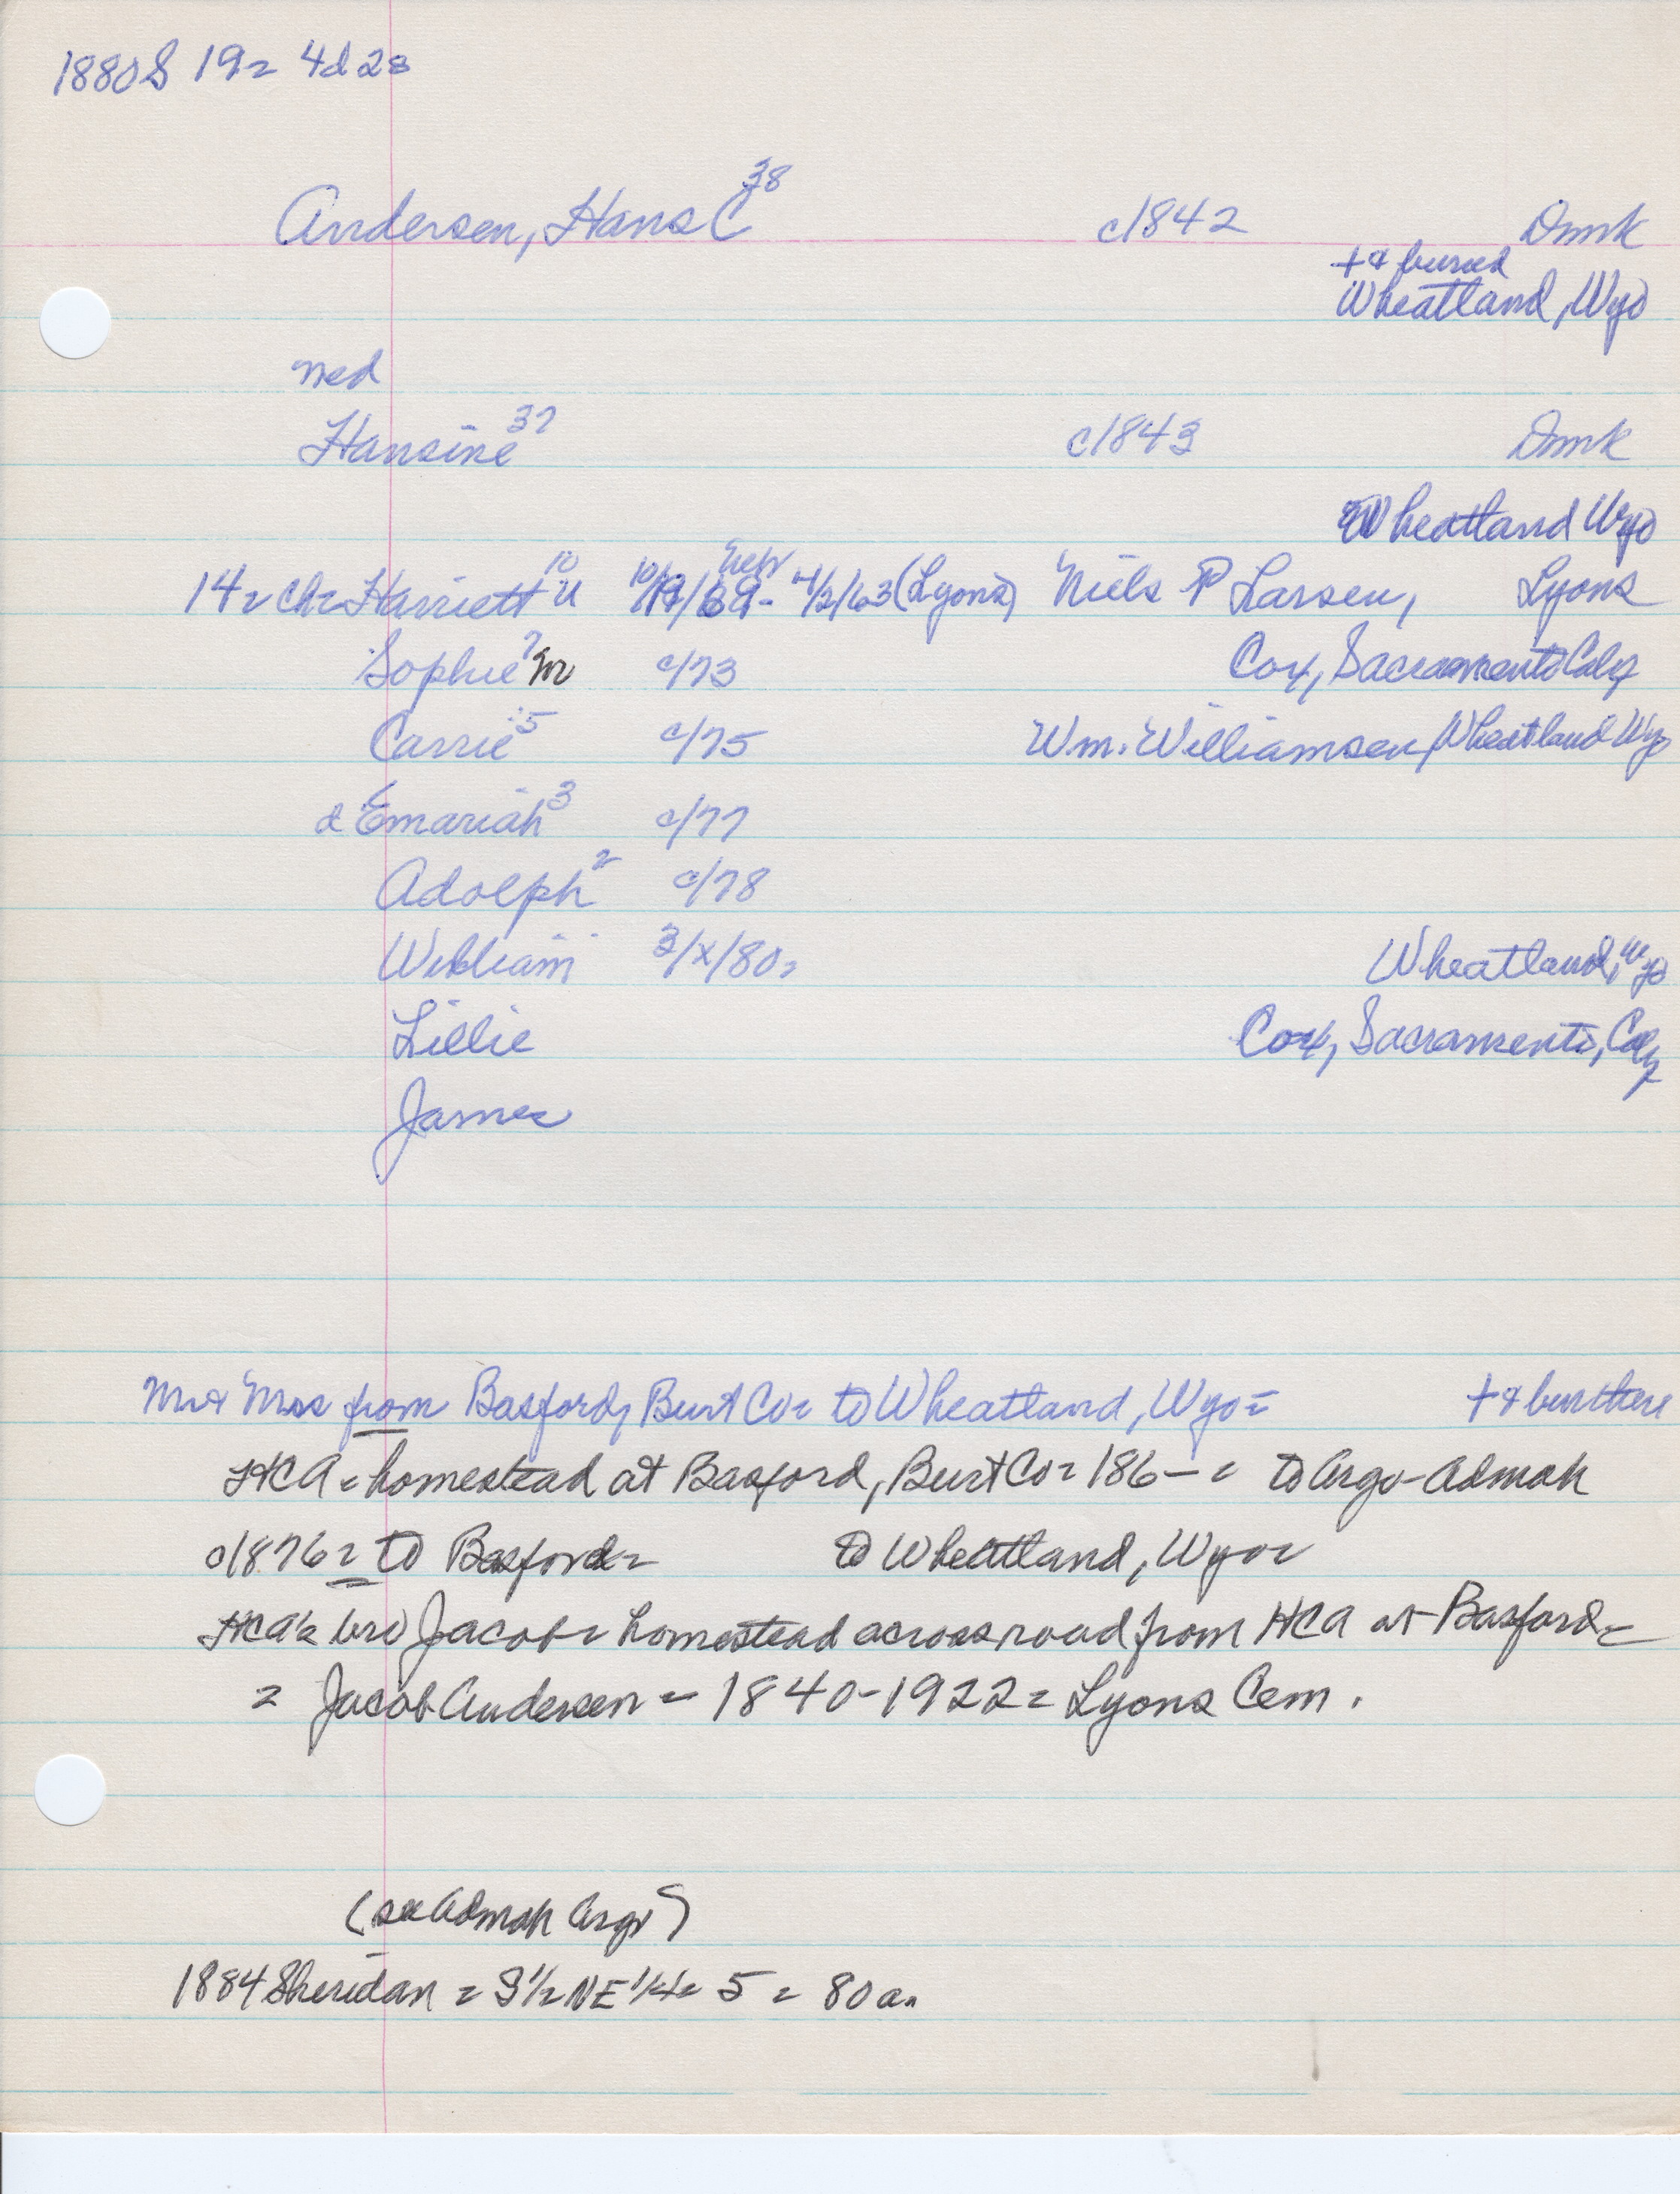 1880S 19= 4d 2s
Andersen, Hans C 38 c1842 Dmk
+ & buried
Wheatland, Wyo
med
Hansine 37 c1843 Dmk
Wheatland Wyo
14= ch= Harriett 10 10/19/69 Nebr - 4/2/63 (Lyons) Niels P Larsen, Lyons
Sophie 7 c/73 Cox, Sacramento Calif
Carrie 5 c/75 Wm. Williamsen, Wheatland Wyo
d Emariah 3 c/77
Adolph 2 c/78
William 3/x/80= Wheatland, Wyo
Lillie Cox, Sacramento, Calif
James
Mr & Mrs from Basford, Burt Co= to Wheatland, Wyo= + & bur there
HCA = homestead at Basford, Burt Co= 186- = to Argo-Admah
c1876= to Basford= to Wheatland, Wyo=
HCA's bro Jacob= homestead across road from HCA at Basford=
= Jacob Andersen = 1840-1922= Lyons Cem.
(see Admah Argo)
1884 Sheridan = S½ NE ¼= 5 = 80 a.